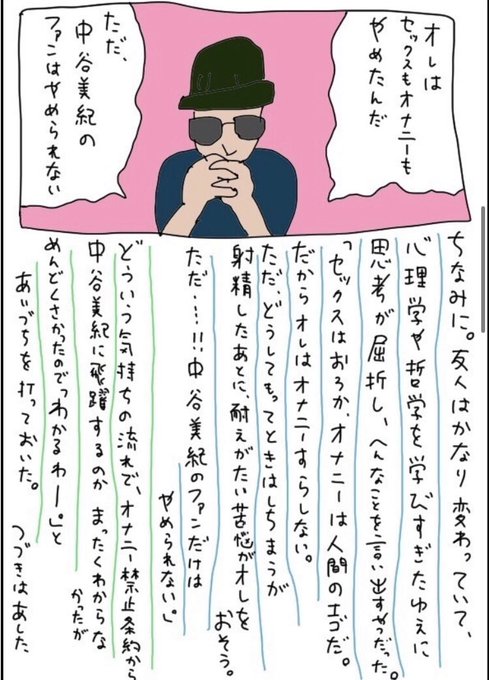 オレは
セックスもオナニーも
やめたんだ
ただ、
中谷美紀の
ファンはやめられない
ちなみに。友人はかなり変わっていて、
心理学や哲学を学びすぎたゆえに
思考が屈折し、へんなことを言い出すやつだった。
「セックスはおろか、オナニーは人間のエゴだ。
だからオレはオナニーすらしない。
ただ、どうしてもってときはしちまうが
射精したあとに、耐えがたい苦悩がオレを
おそう。
ただ……!!中谷美紀のファンだけは
やめられない。」
どういう気持ちの流れで、オナニー禁止条約から
中谷美紀に飛躍するのか まったくわからな
かったが
めんどくさかったので「わかるわー。」と
あいづちを打っておいた。
つづきはあした、